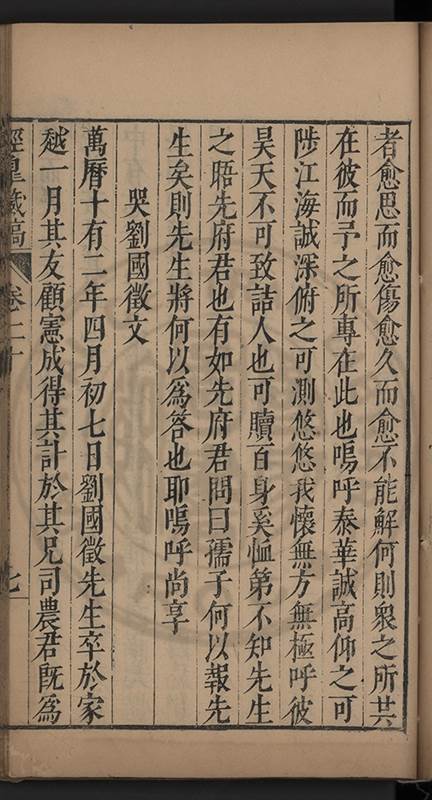 者愈思而愈傷愈久而愈不能解何則衆之所共
在彼而予之所專在此也嗚呼泰華誠高仰之可
陟江海誠深俯之可測悠悠我懷無方無極呼彼
昊天不可致詰人也可贖百身奚恤第不知先生
之晤先府君也有如先府君問曰孺子何以報先
生矣則先生將何以爲答也耶嗚呼尚享
哭劉國徵文
萬曆十有二年四月初七日劉國徵先生卒於家
越一月其友顧憲成得其訃於其兄司農君旣爲
涇臯藏稿
卷二十
七